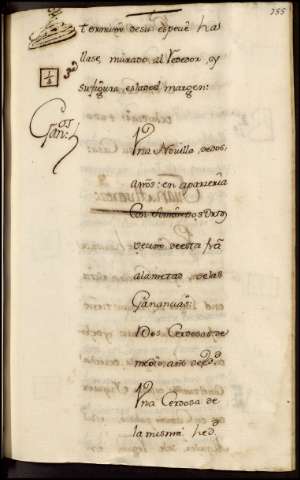 155
termino, desu espeue ha
llase, mirado, al Vededor, oy
su figura, es la del margen:
1/2 3ª
Gan.os
Vna Novilla, de dos,
años: en aparzeria
Con Simón
Vecino, de esta V.ª
a la metad, de las
Ganancias:
Dos Cerdosas, de
medio, año de hed.d
Vna Cerdosa de
la misma hed.d